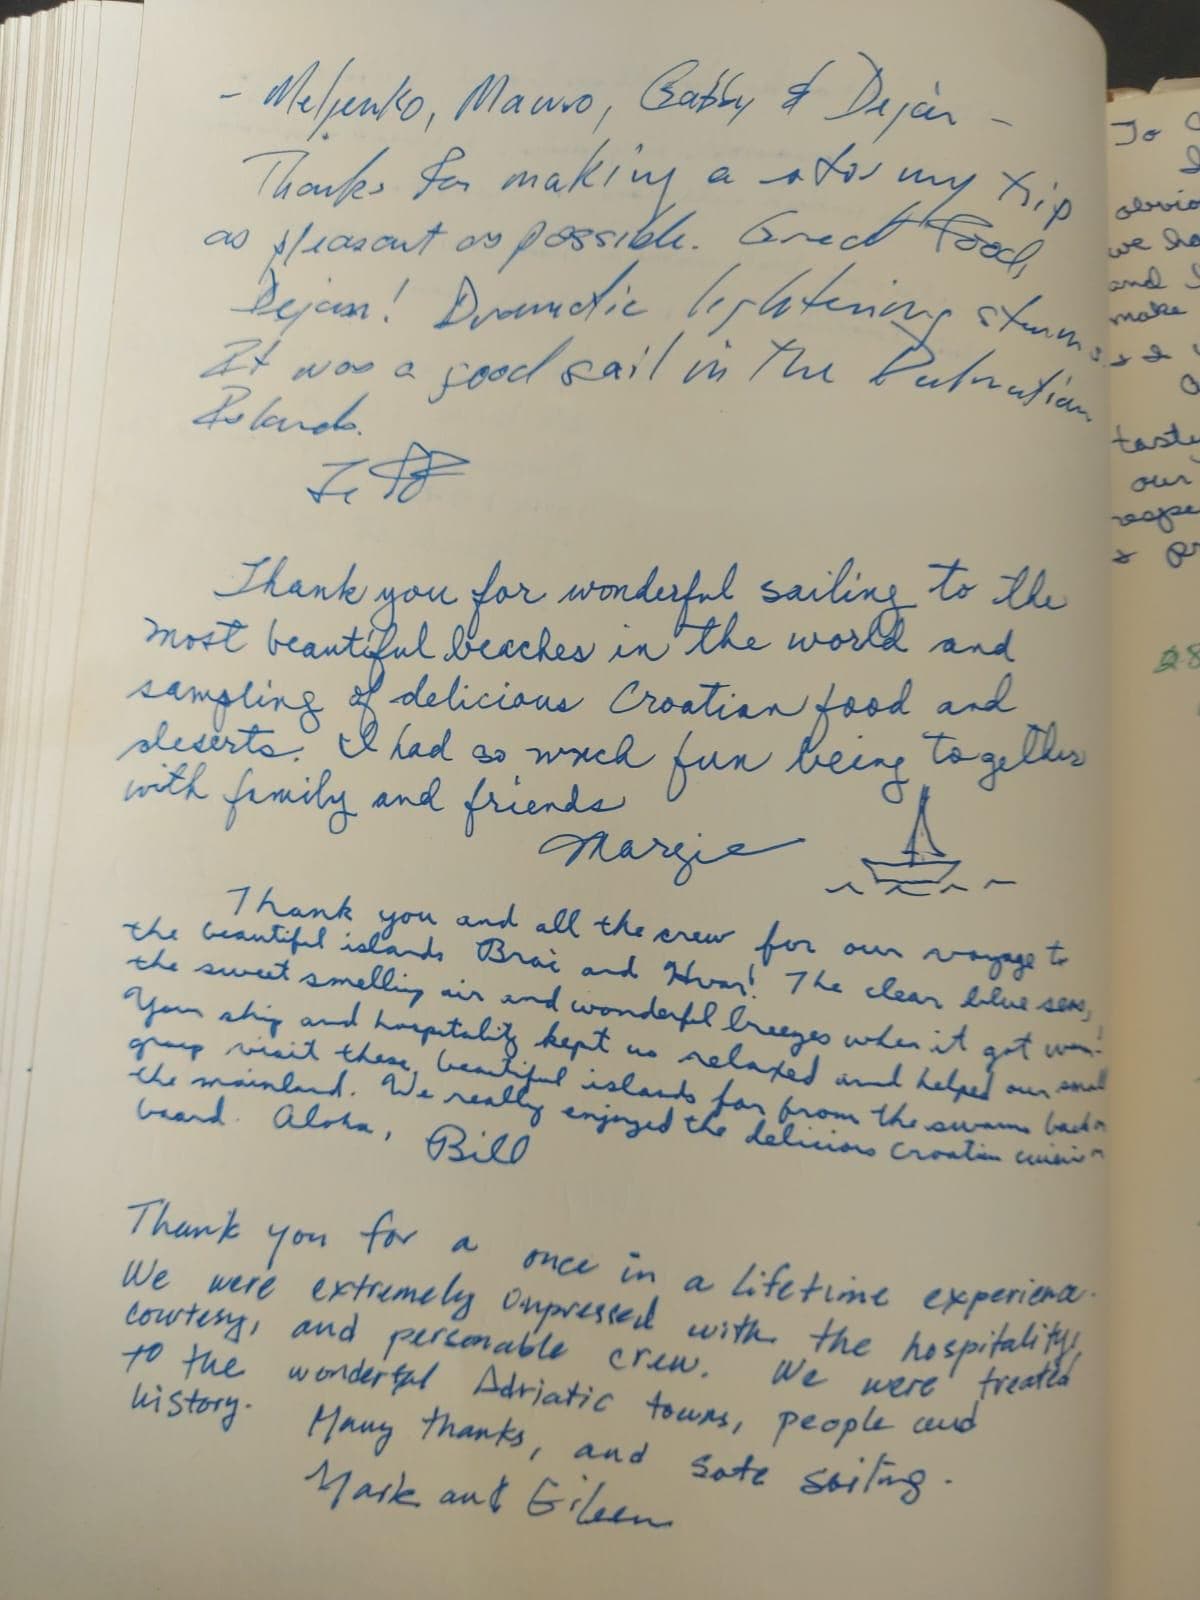 - Meljenko, Mauro, Gabby & Dejan -
Thanks for making a my trip
as pleasant as possible. Great Food,
Dejan! Dramatic lightening storms.
It was a good sail in the Dalmatian
Islands.
Thank you for wonderful sailing to the
most beautiful beaches in the world and
sampling of delicious Croatian food and
deserts. I had so much fun being together
with family and friends
Margie
Thank you and all the crew for our voyage to
the beautiful islands Brač and Hvar! The clear blue seas,
the sweet smelling air and wonderful breezes when it got warm.
Your ship and hospitality kept us relaxed and helped our small
group visit these beautiful islands far from the swarms back on
the mainland. We really enjoyed the delicious Croatian cuisine on
board. Aloha, Bill
Thank you for a once in a lifetime experience.
We were extremely impressed with the hospitality,
courtesy, and personable crew. We were treated
to the wonderful Adriatic towns, people and
history.
Many thanks, and safe sailing.
Mark and Eileen
To
obvio
we ha
and I
make
& I
tasty
our
respe
& pr
28